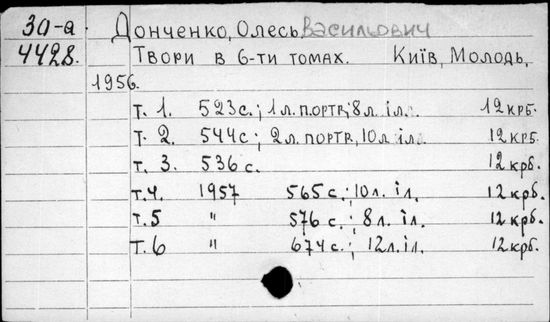 3а-а Донченко, Олесь Васильович
4428. Твори в 6-ти томах. Київ, Молодь,
1956.
т. 1. 523 с.; 1 л. портр; 8 л. іл. 12 крб.
т. 2. 544 с.; 2 л. портр, 10 л. іл. 12 крб.
т. 3. 536 с. 12 крб.
т. 4. 1957 565 с.; 10 л. іл. 12 крб.
т. 5 " 576 с.; 8 л. іл. 12 крб.
т. 6 " 674 с.; 12 л. іл. 12 крб.